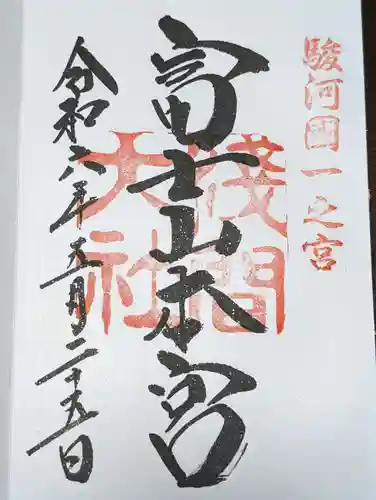 駿河國一之宮
富士山本宮
淺間大社
令和六年五月二十五日